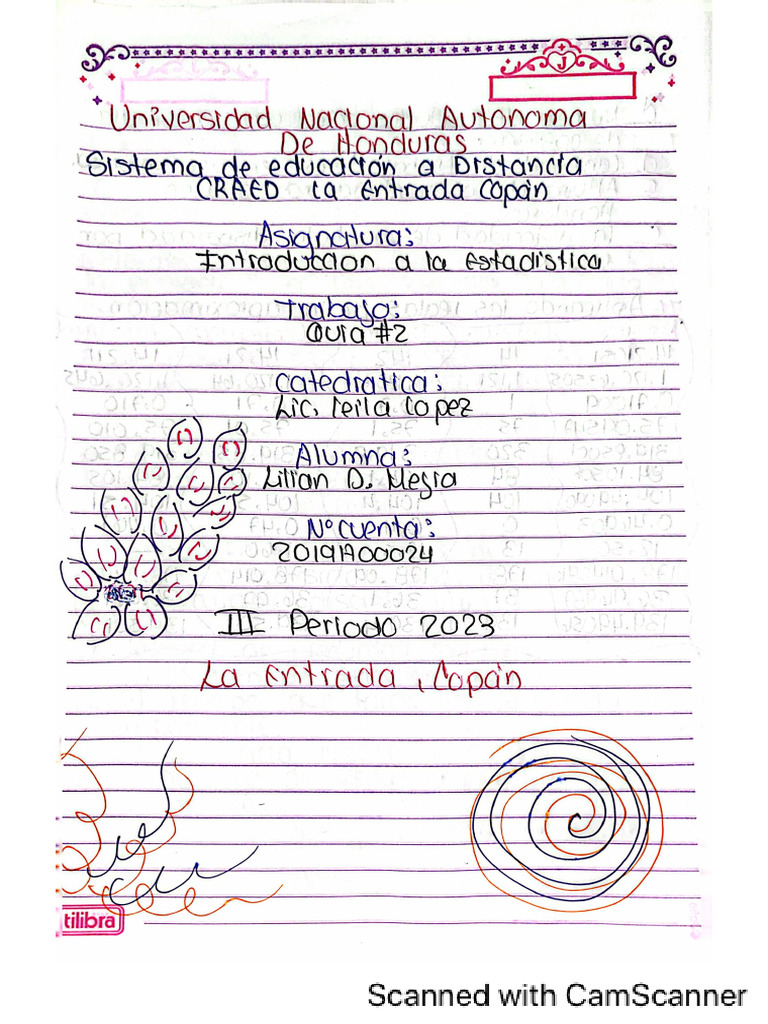 J
Universidad Nacional Autonoma
De Honduras
Sistema de educación a Distancia
CRAED La Entrada Copán
Asignatura:
Introduccion a la Estadistica
Trabajo:
Guia #2
Catedratica:
Lic. leila Lopez
Alumna:
Lilian D. Mejia
N° cuenta:
20191900024
III Periodo 2023
La Entrada, Copán
tilibra
Scanned with CamScanner